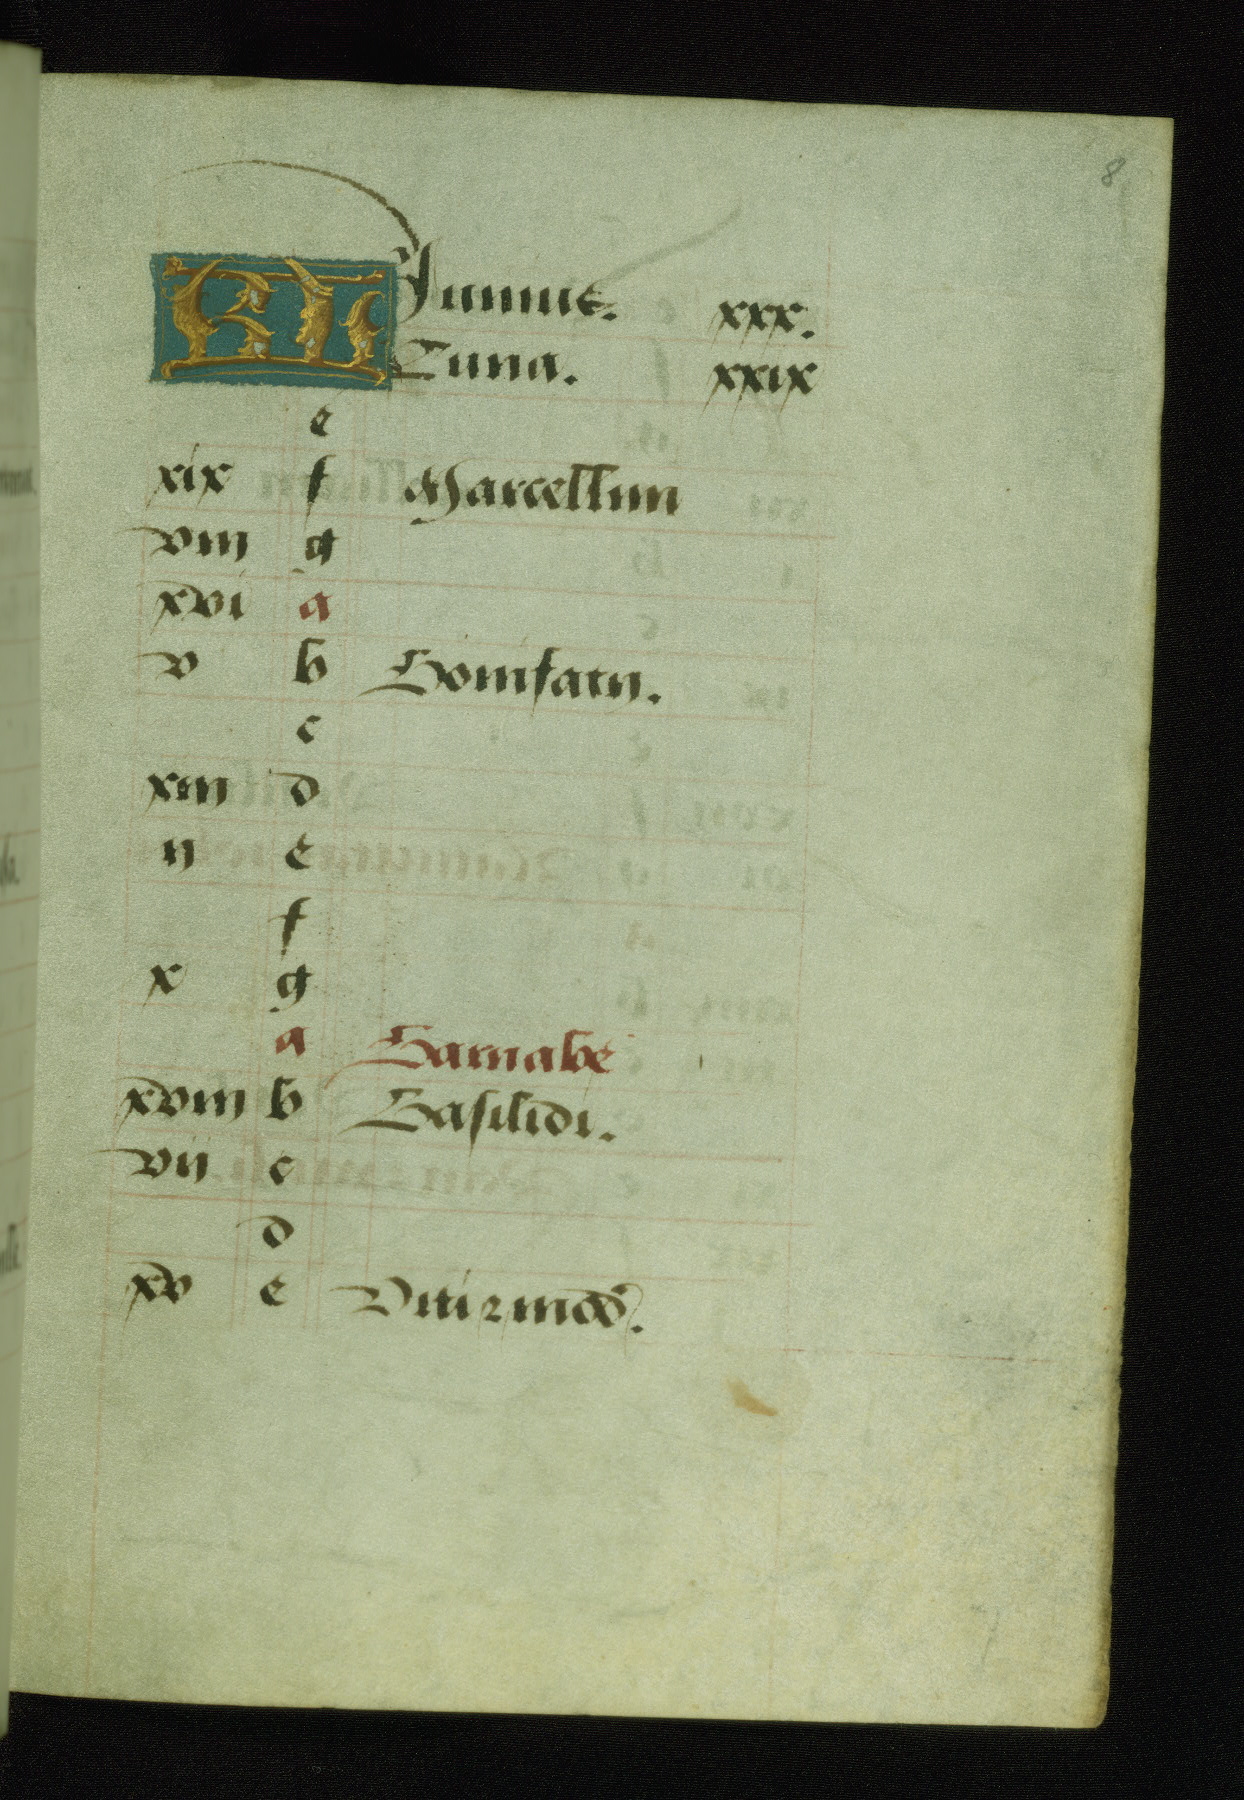 8
KL Junius. xxx.
Luna. xxix
e
xix f Marcellini
viii g
xvi a
v b Bonifatii.
c
xiii d
ii e
f
x g
a Barnabe
xviii b Basilidi.
vii c
d
xv e Viti ⁊ mod.